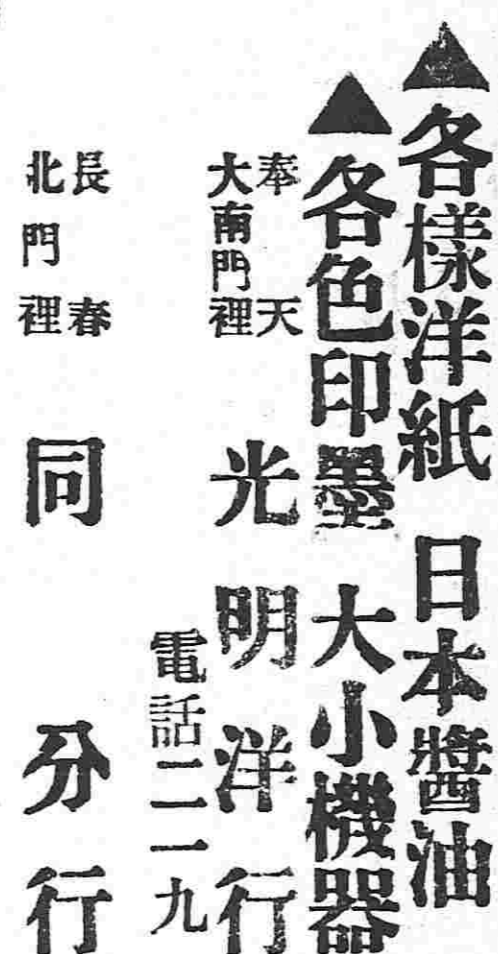 ▲各樣洋紙 日本醬油
▲各色印墨 大小機器
奉天
大南門裡
光明洋行
電話二一九
長春
北門裡
同分行